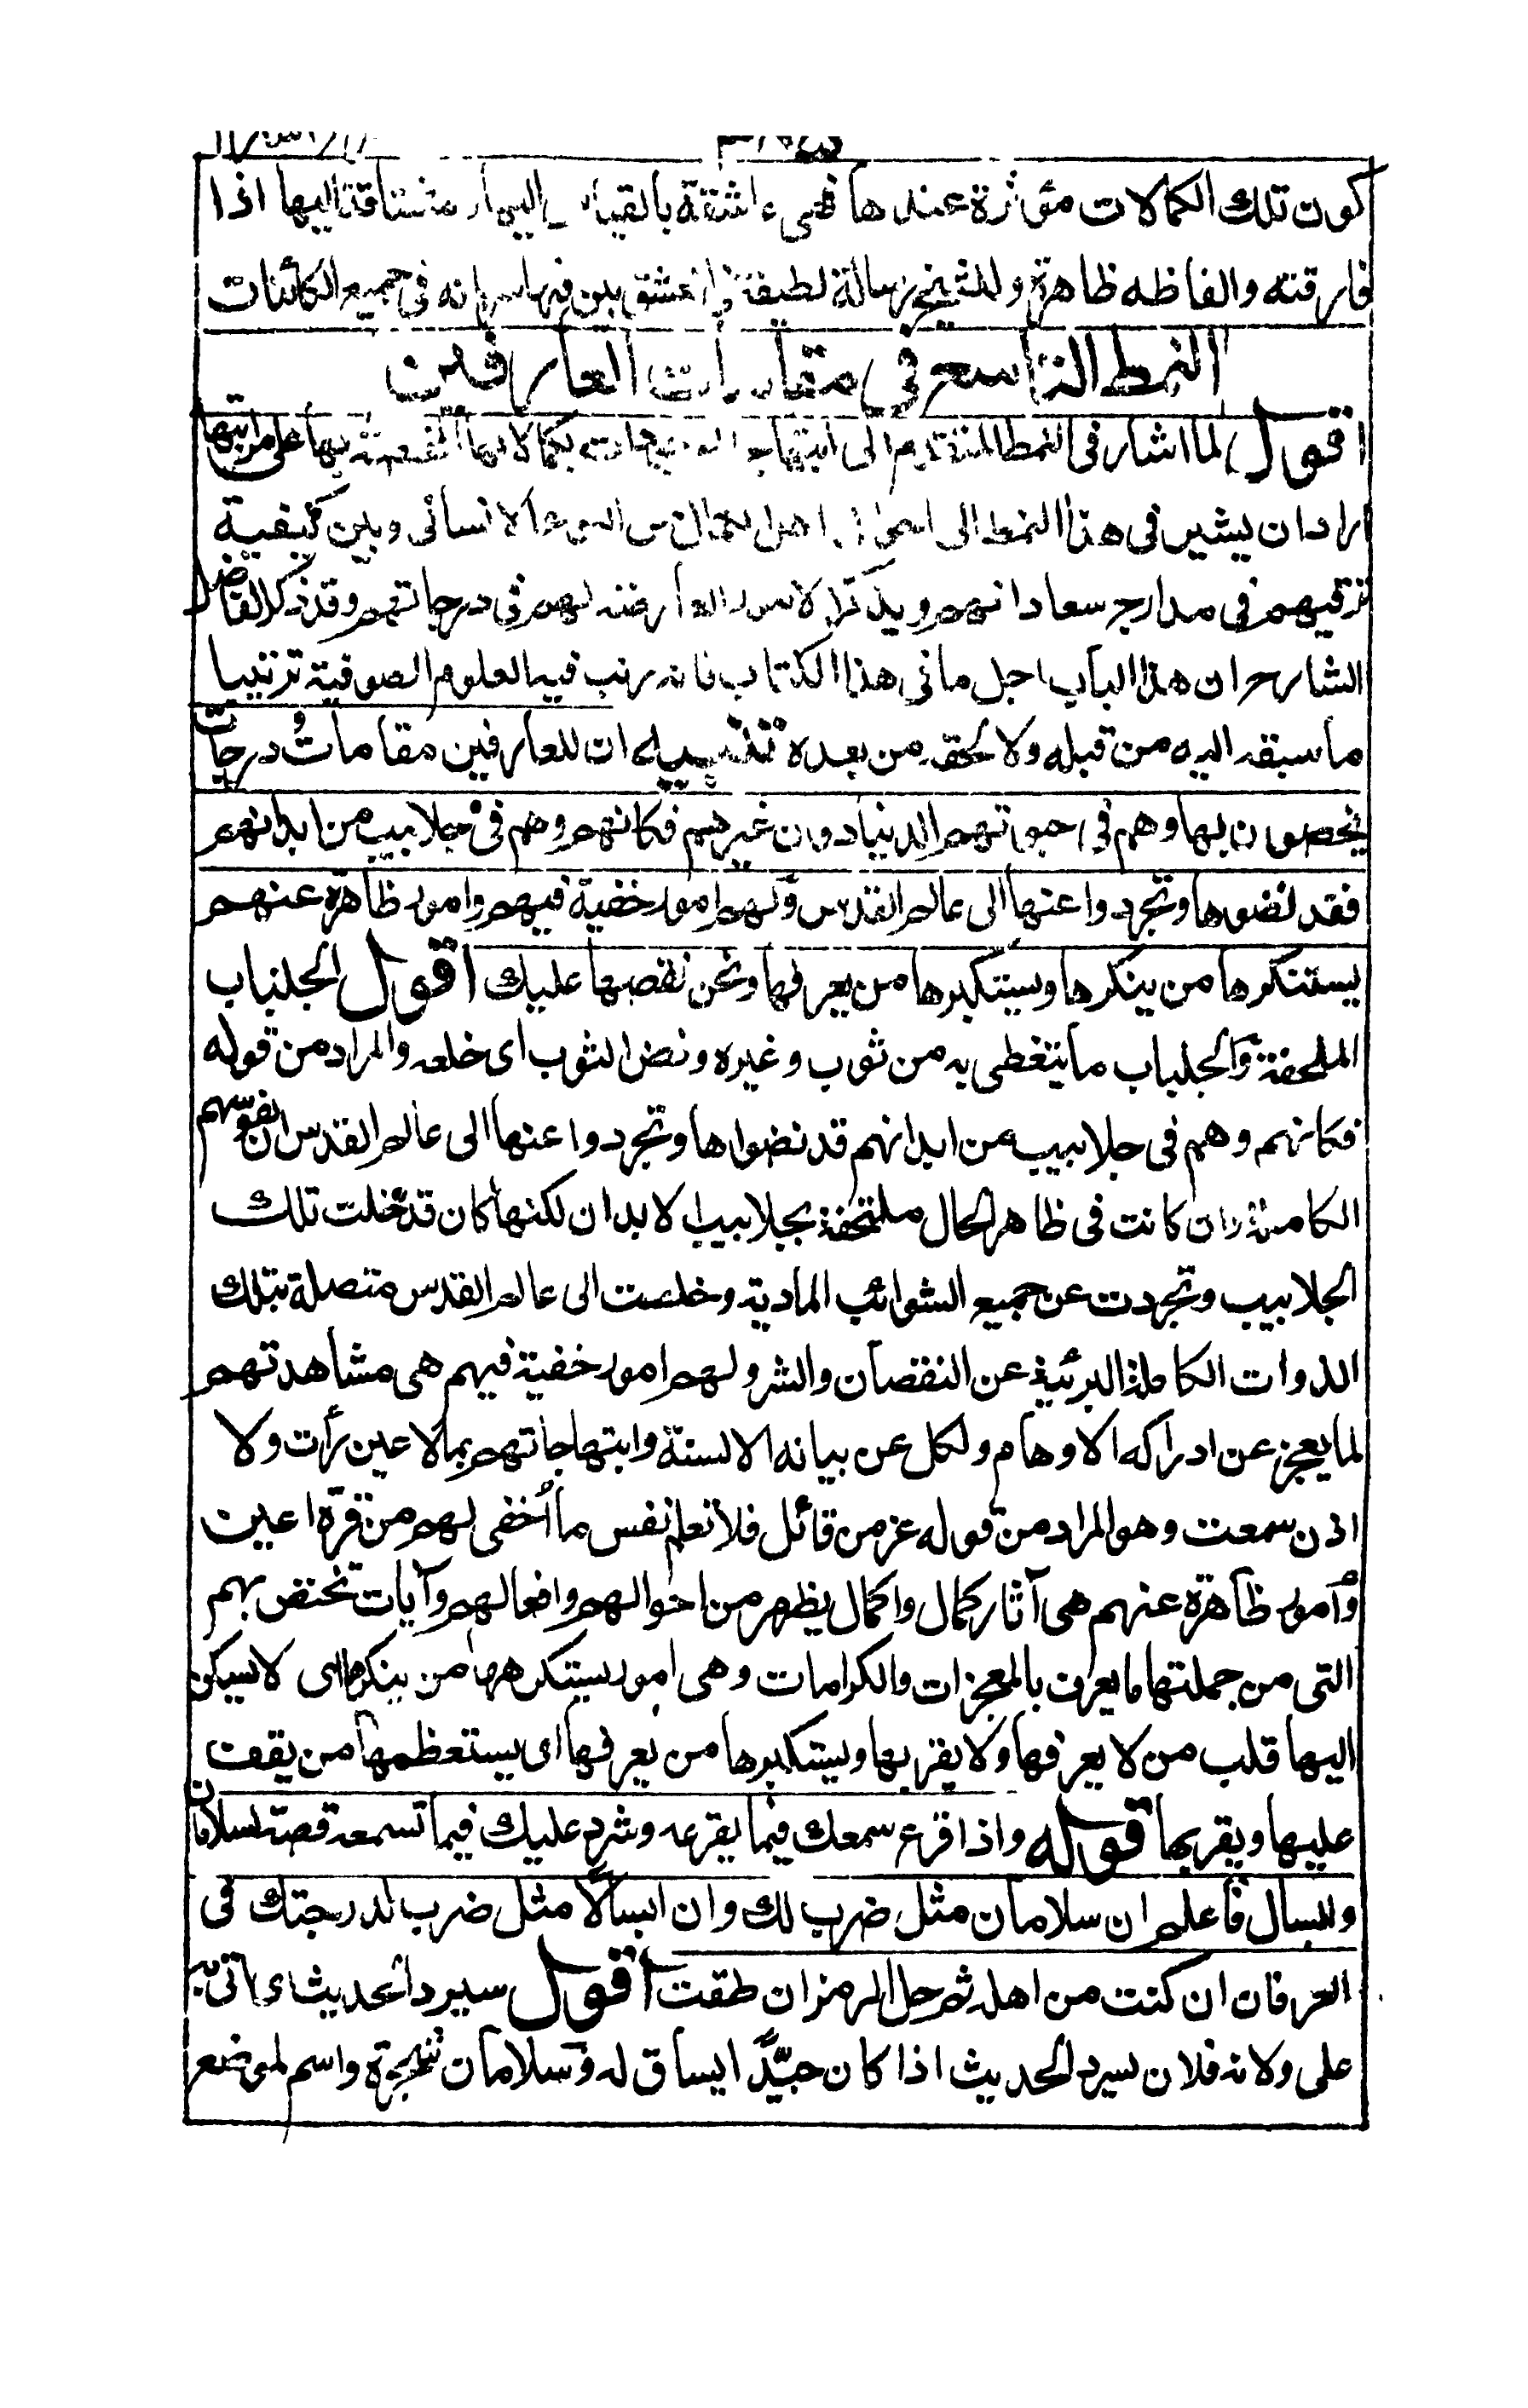 كون تلك الكمالات مؤثرة عندها فهى عاشقة بالقياس اليها مشتاقة اليها اذا
فارقته والفاظه ظاهرة وللشيخ رسالة لطيفة فى العشق بين فيها سريانه فى جميع الكائنات
النمط التاسع فى مقامات العارفين
اقول لما اشار فى النمط المتقدم الى ابتهاج الموجودات بكمالاتها المختصة بها على مراتبها
اراد ان يشير فى هذا النمط الى احوال اهل الكمال من النوع الانسانى وبين كيفية
ترقيهم فى مدارج سعاداتهم ويذكر الامور العارضة لهم فى درجاتهم وقد ذكر الفاضل
الشارح ان هذا الباب اجل ما فى هذا الكتاب فانه رتب فيه العلوم الصوفية ترتيبا
ما سبقه اليه من قبله ولا لحقه من بعده تنبيه ان للعارفين مقامات ودرجات
يخصون بها وهم فى حيوتهم الدنيا دون غيرهم فكانهم وهم فى جلابيب من ابدانهم
فقد نضوها وتجردوا عنها الى عالم القدس ولهم امور خفية فيهم وامور ظاهرة عنهم
يستنكرها من ينكرها ويستكبرها من يعرفها ونحن نقصها عليك اقول الجلباب
الملحفة والجلباب ما يتغطى به من ثوب وغيره ونض الثوب اى خلعه والمراد من قوله
فكانهم وهم فى جلابيب من ابدانهم قد نضوا ها وتجردوا عنها الى عالم القدس ان نفوسهم
الكاملة وان كانت فى ظاهر الحال ملتحفة بجلابيب الابدان لكنها كان قد خلت تلك
الجلابيب وتجردت عن جميع الشوائب المادية وخلصت الى عالم القدس متصلة بتلك
الذوات الكاملة البرئية عن النقصان والشر ولهم امور خفية فيهم هى مشاهدتهم
لما يعجز عن ادراكه الاوهام ولكل عن بيانه الالسنة وابتهاجاتهم بمالا عين رأت ولا
اذن سمعت وهو المراد من قوله عز من قائل فلا تعلم نفس ما أخفى لهم من قرة اعين
وامور ظاهرة عنهم هى آثار كمال واكمال يظهر من احوالهم وافعالهم وآيات تختص بهم
التى من جملتها ما يعرف بالمعجزات والكرامات وهى امور يستنكرها من ينكرها اى لا يسكن
اليها قلب من لا يعرفها ولا يقر بها ويستكبرها من يعرفها اى يستعظمها من يقف
عليها ويقر بها قوله واذا قرع سمعك فيما يقرعه وشرد عليك فيما تسمعه قصة لسلامان
ولبسال فاعلم ان سلامان مثل ضرب لك وان ابسالا مثل ضرب لدرجتك فى
العرفان ان كنت من اهله ثم حل الرمز ان طقت اقول سيرد الحديث اى اتى به
على ولائه فلان يسرد الحديث اذا كان جيد السياق له وسلامان شجرة واسم لموضع